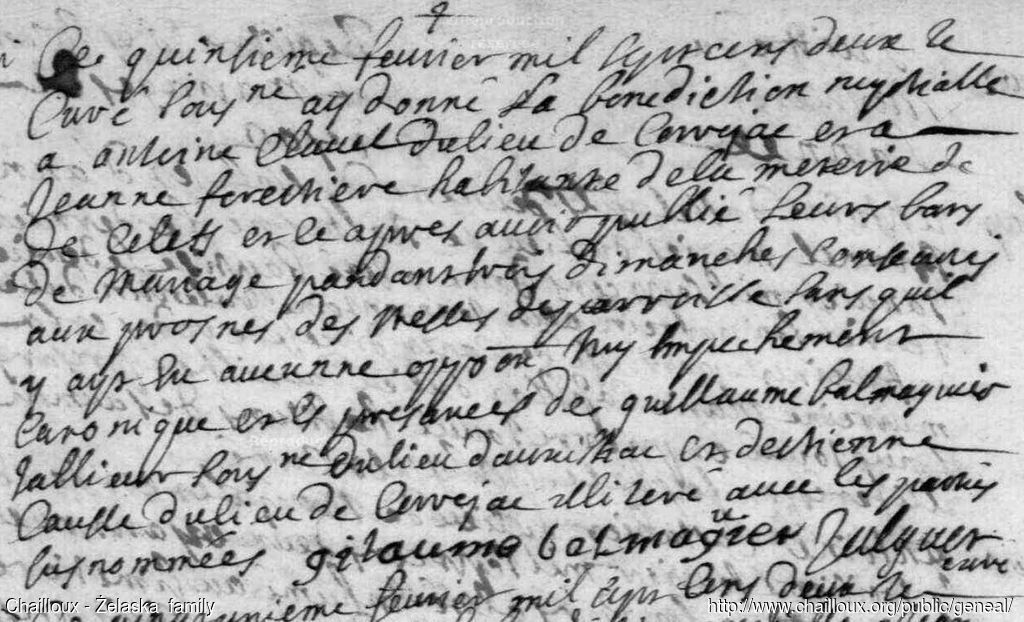 Ce quinsieme feuvrier mil sept cens deux le
Curé sous.ne ay donné la benediction nuptialle
a antoine Clauel du lieu de Cervejac et a
Jeanne forestiere habitante de la meterie de
de et ce apres auoir publié leurs bans
de mariage pandant trois dimanches consecutifs
aux prosnes des messes de parroisse sans quil
y ayt eu aucunne oppoon ny Empechement
Canonique et es presances de guillaume balmaguier
tallieur sous.ne du lieu daurilhac et destienne
Causse du lieu de Cervejac illiteré auec les parties
susnommées gilaume balmaguier
curé
feuvrier mil sept Cens deux le
Chailloux - Żelaska family
http://www.chailloux.org/public/geneal/